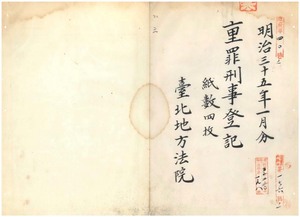 明治三十五年一月分
重罪刑事登記
紙數四枚
臺北地方法院